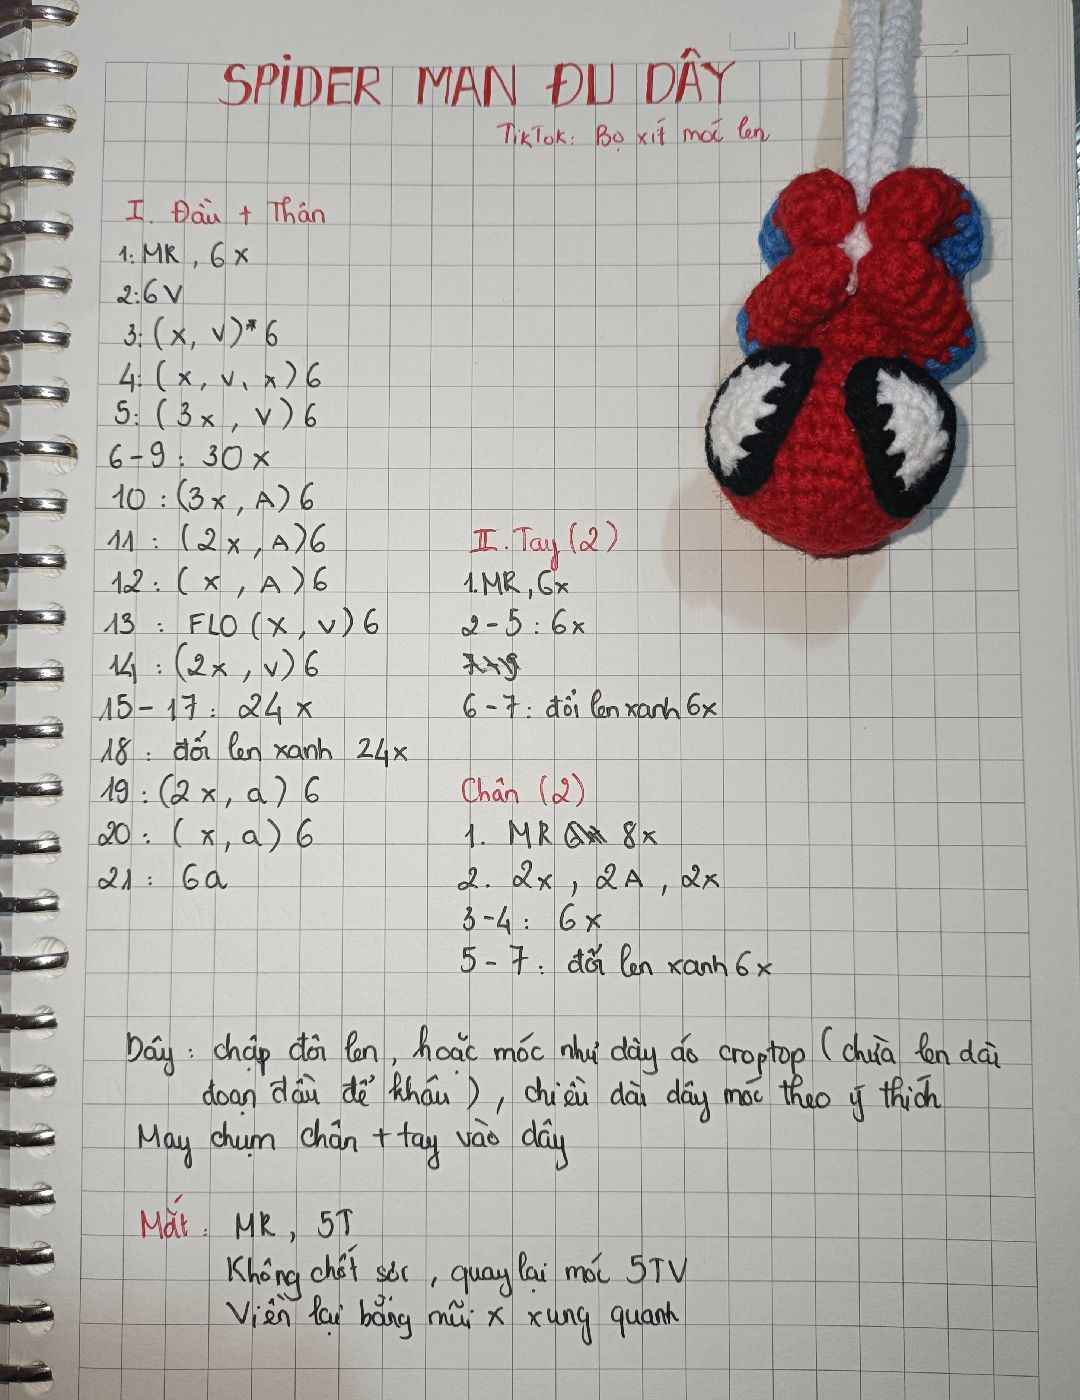 SPIDER MAN ĐU DÂY
TikTok: Bọ xít móc len
I. Đầu + Thân
1: MR, 6x
2: 6V
3: (x, v)*6
4: (x, v, x)6
5: (3x, v)6
6-9: 30x
10: (3x, A)6
11: (2x, A)6
12: (x, A)6
13: FLO (x, v)6
14: (2x, v)6
15-17: 24x
18: đổi len xanh 24x
19: (2x, a)6
20: (x, a)6
21: 6a
II. Tay (2)
1. MR, 6x
2-5: 6x
6-7: đổi len xanh 6x
Chân (2)
1. MR 8x
2. 2x, 2A, 2x
3-4: 6x
5-7: đổi len xanh 6x
Dây: chập đôi len, hoặc móc như dây áo croptop (chừa len dài
đoạn đầu để khâu), chiều dài dây móc theo ý thích
May chụm chân + tay vào dây
Mắt: MR, 5T
Không chốt sóc, quay lại móc 5TV
Viền lại bằng mũi x xung quanh